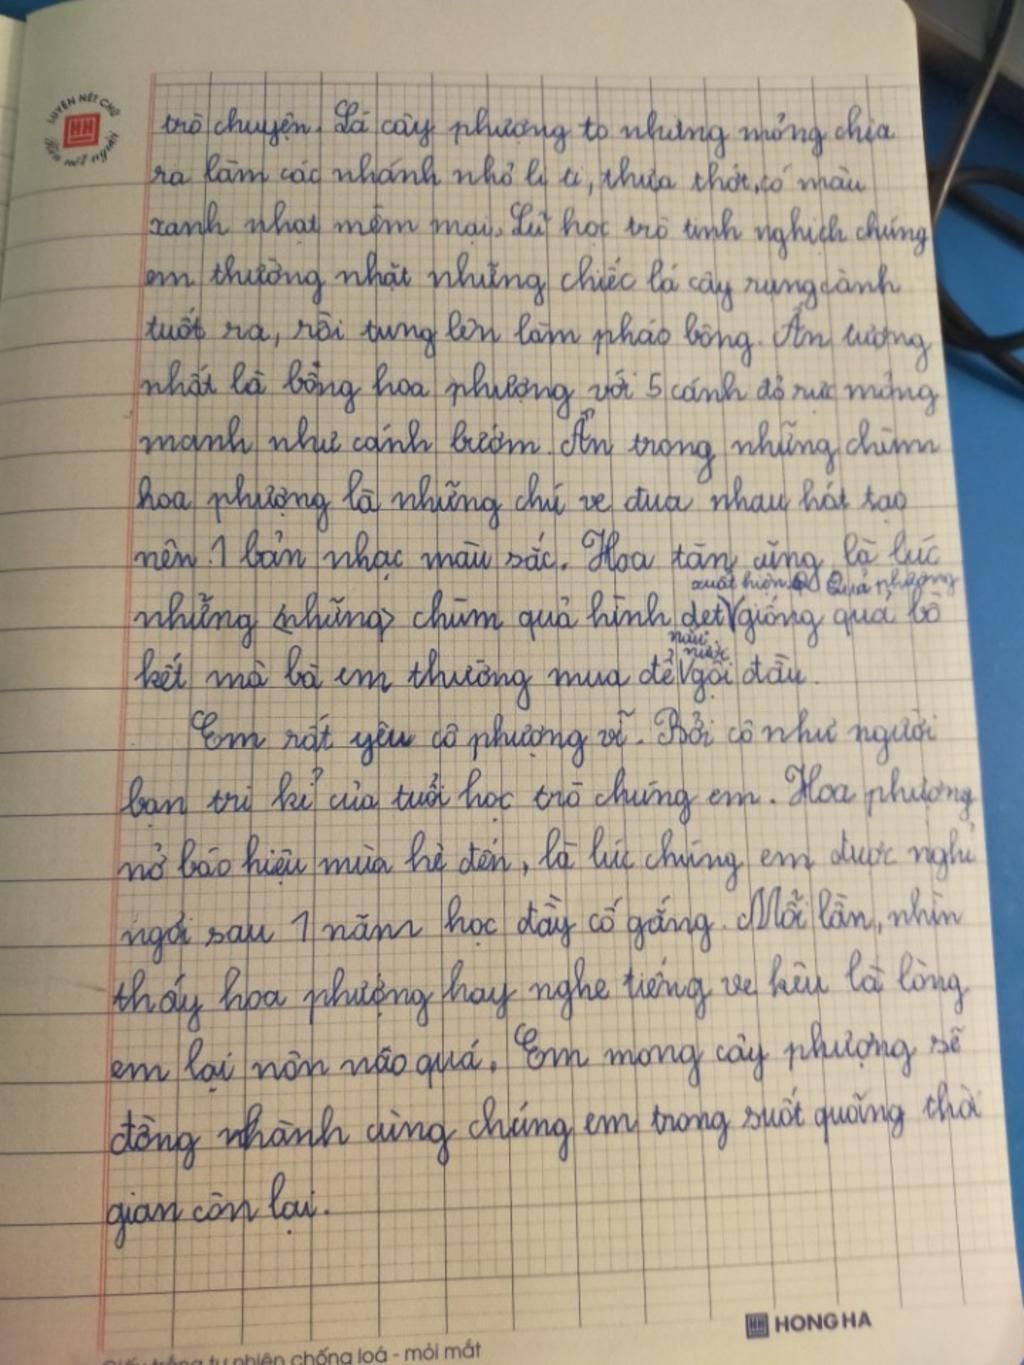 LUYỆN NÉT CHỮ
Rèn nết người
trò chuyện. Lá cây phượng to nhưng mỏng chia
ra làm các nhánh nhỏ li ti, thưa thớt, có màu
xanh nhạt mềm mại. Lũ học trò tinh nghịch chúng
em thường nhặt những chiếc lá cây rụng cành
tuốt ra, rồi tung lên làm pháo bông. Ấn tượng
nhất là bông hoa phượng với 5 cánh đỏ rực mỏng
manh như cánh bướm. Ẩn trong những chùm
hoa phượng là những chú ve đua nhau hát tạo
nên 1 bản nhạc màu sắc. Hoa tàn cũng là lúc
xuất hiện. Quả phượng
những <những> chùm quả hình dẹt V giống quả bồ
nấu nước
kết mà bà em thường mua để V gội đầu.
Em rất yêu cô phượng vĩ. Bởi cô như người
bạn tri kỉ của tuổi học trò chúng em. Hoa phượng
nở báo hiệu mùa hè đến, là lúc chúng em được nghỉ
ngơi sau 1 năm học đầy cố gắng. Mỗi lần, nhìn
thấy hoa phượng hay nghe tiếng ve kêu là lòng
em lại nôn nao quá. Em mong cây phượng sẽ
đồng nhành cùng chúng em trong suốt quãng thời
gian còn lại.
HONG HA
Giấy trắng tự nhiên chống loá - mỏi mắt